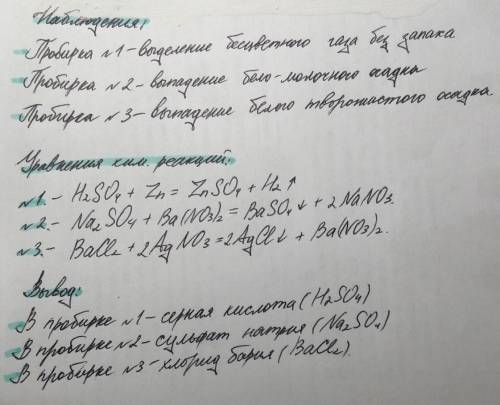 Наблюдения:
Пробирка №1 - выделение бесцветного газа без запаха
Пробирка №2 - выпадение бело-молочного осадка
Пробирка №3 - выпадение белого творожистого осадка.
Уравнения хим. реакций:
№1. - H₂SO₄ + Zn = ZnSO₄ + H₂↑
№2. - Na₂SO₄ + Ba(NO₃)₂ = BaSO₄↓ + 2NaNO₃.
№3. - BaCl₂ + 2AgNO₃ = 2AgCl↓ + Ba(NO₃)₂.
Вывод:
В пробирке №1 - серная кислота (H₂SO₄)
В пробирке №2 - сульфат натрия (Na₂SO₄)
В пробирке №3 - хлорид бария (BaCl₂).